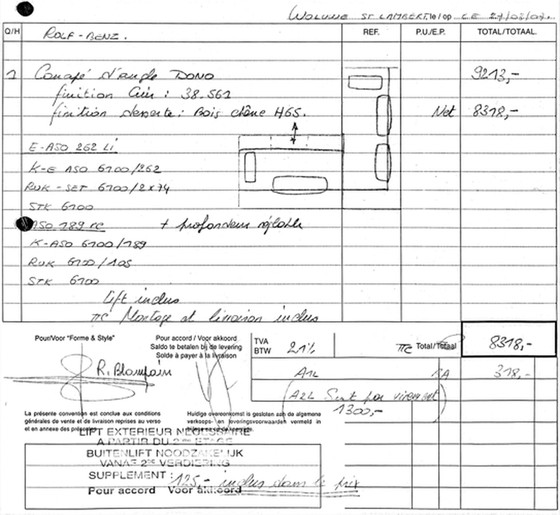 WOLUWE ST LAMBERT le/op CE 27/03/07.
Q/H REF. P.U./E.P. TOTAL/TOTAAL
ROLF-BENZ.
1 Canapé d'angle DONO 9213,-
finition Cuir : 38.561
finition desserte : Bois chêne HGS. Net 8318,-
E-ASO 262 Li
K-E ASO 6100/262
RUK-SET 6100/2x74
STK 6100
ASO 189 re + profondeur réglable
K-ASO 6100/189
RUK 6100/105
STK 6100
Lift inclus
TTC Montage et livraison inclus
Pour/Voor "Forme & Style"
Pour accord / Voor akkoord
Saldo te betalen bij de levering
Solde à payer à la livraison
TVA
BTW
21% TTC Total/Totaal 8318,-
R. Blampain
318,-
par virement
1300,-
La présente convention est conclue aux conditions
générales de vente et de livraison reprises au verso
et en annexe des présentes
Huidige overeenkomst is gesloten aan de algemene
verkoops- en leveringsvoorwaarden vermeld in
LIFT EXTERIEUR NECESSAIRE
A PARTIR DU 2me ETAGE
BUITENLIFT NOODZAKELIJK
VANAF 2de VERDIERING
SUPPLEMENT : 125,- inclus dans le prix
Pour accord Voor akkoord